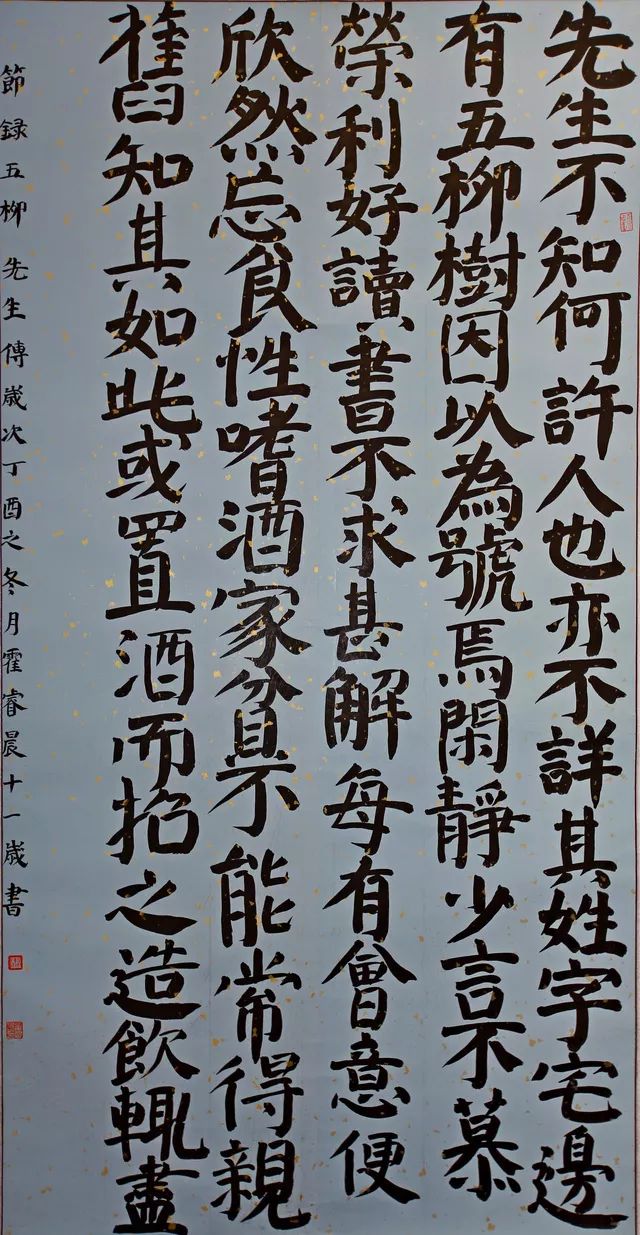 先生不知何許人也亦不詳其姓字宅邊
有五柳樹因以為號焉閑靜少言不慕
榮利好讀書不求甚解每有會意便
欣然忘食性嗜酒家貧不能常得親
舊知其如此或置酒而招之造飲輒盡
節錄五柳先生傳歲次丁酉之冬月霍睿晨十一歲書